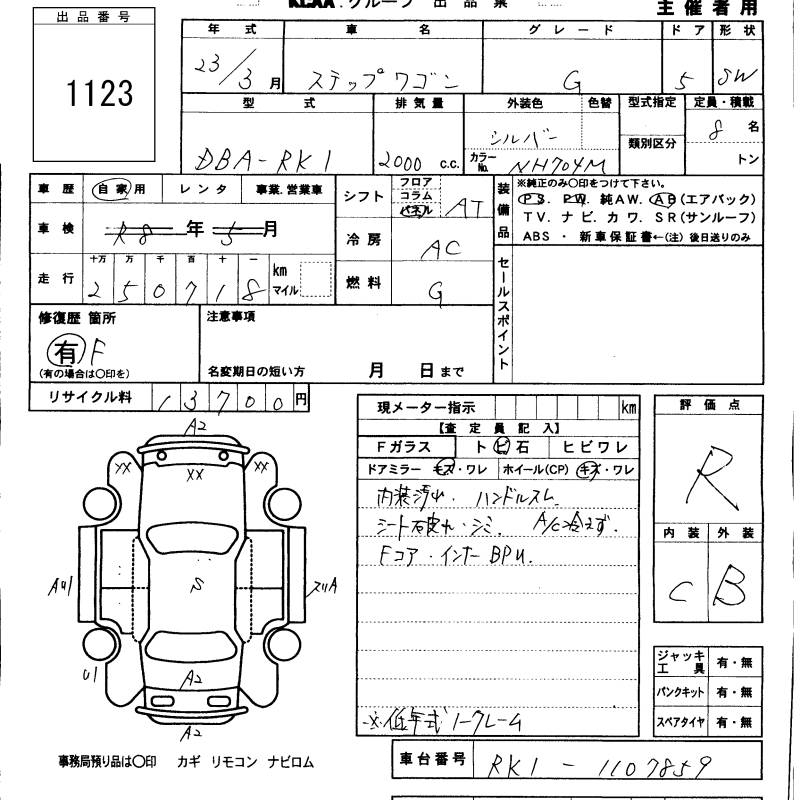 KCAA.グループ 出品票
主催者用
出品番号
1123
年式 車名 グレード ドア 形状
23/3月 ステップワゴン G 5 SW
型式 排気量 外装色 色替 型式指定 定員・積載
DBA-RK1 2000 c.c. シルバー 類別区分 8名
カラーNo. NH704M トン
車歴 自家用 レンタ 事業.営業車
シフト フロア コラム パネル AT
装備品 ※純正のみ○印をつけて下さい。
PS. PW. 純AW. AB(エアバック)
TV. ナビ. カワ. SR(サンルーフ)
ABS ・ 新車保証書←(注)後日送りのみ
車検 R8年5月
冷房 AC
走行 十万 万 千 百 十 一
250718 km マイル
燃料 G
セールスポイント
修復歴 箇所
有 F
(有の場合は○印を)
注意事項
名変期日の短い方 月 日まで
リサイクル料 13700円
現メーター指示 km
【査定員記入】
Fガラス トビ石 ヒビワレ
ドアミラー キズ・ワレ ホイール(CP) キズ・ワレ
内装汚れ. ハンドルスレ
シート破れ・シミ. A/C冷えず.
Fコア・インナーBPU.
※低年式ノークレーム
評価点
R
内装 外装
C B
ジャッキ工具 有・無
パンクキット 有・無
スペアタイヤ 有・無
A2
XX XX XX
S
U1
A2
A2
事務局預り品は○印 カギ リモコン ナビロム
車台番号 RK1-1107859